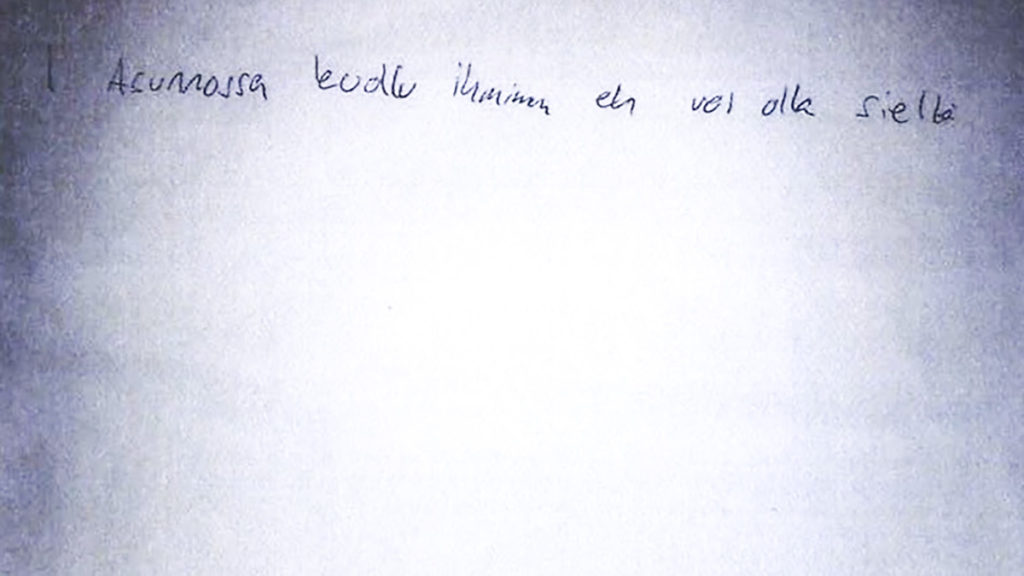 1 Asunnossa kuollu ihminen en voi olla siellä